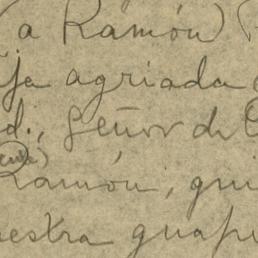 (a Ramón)
ja agriada
d., Señor de
Ramón, qui
estra guap